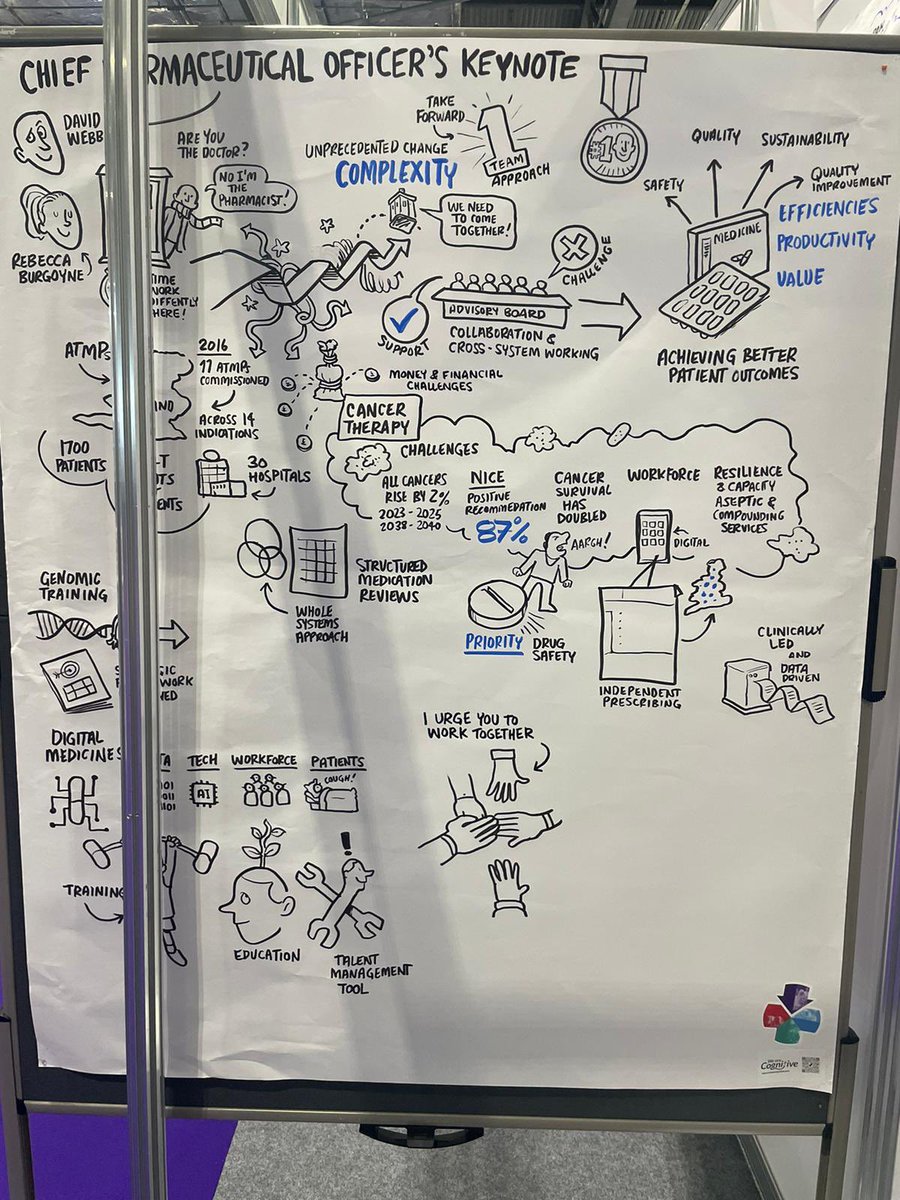 CHIEF RMACEUTICAL OFFICER'S KEYNOTE
DAVID
WEBB
REBECCA
BURGOYNE
ARE YOU
THE DOCTOR?
NO I'M
THE
PHARMACIST!
TIME
WORK
DIFFENTLY
HERE!
UNPRECEDENTED CHANGE
COMPLEXITY
TAKE
FORWARD
1
TEAM
APPROACH
#1
WE NEED
TO COME
TOGETHER!
SUPPORT
ADVISORY BOARD
CHALLENGE
COLLABORATION &
CROSS-SYSTEM WORKING
SAFETY
QUALITY
SUSTAINABILITY
QUALITY
IMPROVEMENT
EFFICIENCIES
PRODUCTIVITY
VALUE
MEDICINE
ACHIEVING BETTER
PATIENT OUTCOMES
ATMPs
2016
17 ATMPs
COMMISSIONED
ACROSS 14
INDICATIONS
1700
PATIENTS
30
HOSPITALS
£
£
£
MONEY & FINANCIAL
CHALLENGES
CANCER
THERAPY
CHALLENGES
ALL CANCERS
RISE BY 2%
2023-2025
2038-2040
NICE
POSITIVE
RECOMMENDATION
87%
CANCER
SURVIVAL
HAS
DOUBLED
WORKFORCE
DIGITAL
RESILIENCE
& CAPACITY
ASEPTIC &
COMPOUNDING
SERVICES
AARGH!
PRIORITY
DRUG
SAFETY
INDEPENDENT
PRESCRIBING
CLINICALLY
LED
AND
DATA
DRIVEN
WHOLE
SYSTEMS
APPROACH
STRUCTURED
MEDICATION
REVIEWS
GENOMIC
TRAINING
DIGITAL
MEDICINES
TECH
AI
WORKFORCE
PATIENTS
COUGH!
TRAINING
EDUCATION
!
TALENT
MANAGEMENT
TOOL
I URGE YOU TO
WORK TOGETHER
Cognitive